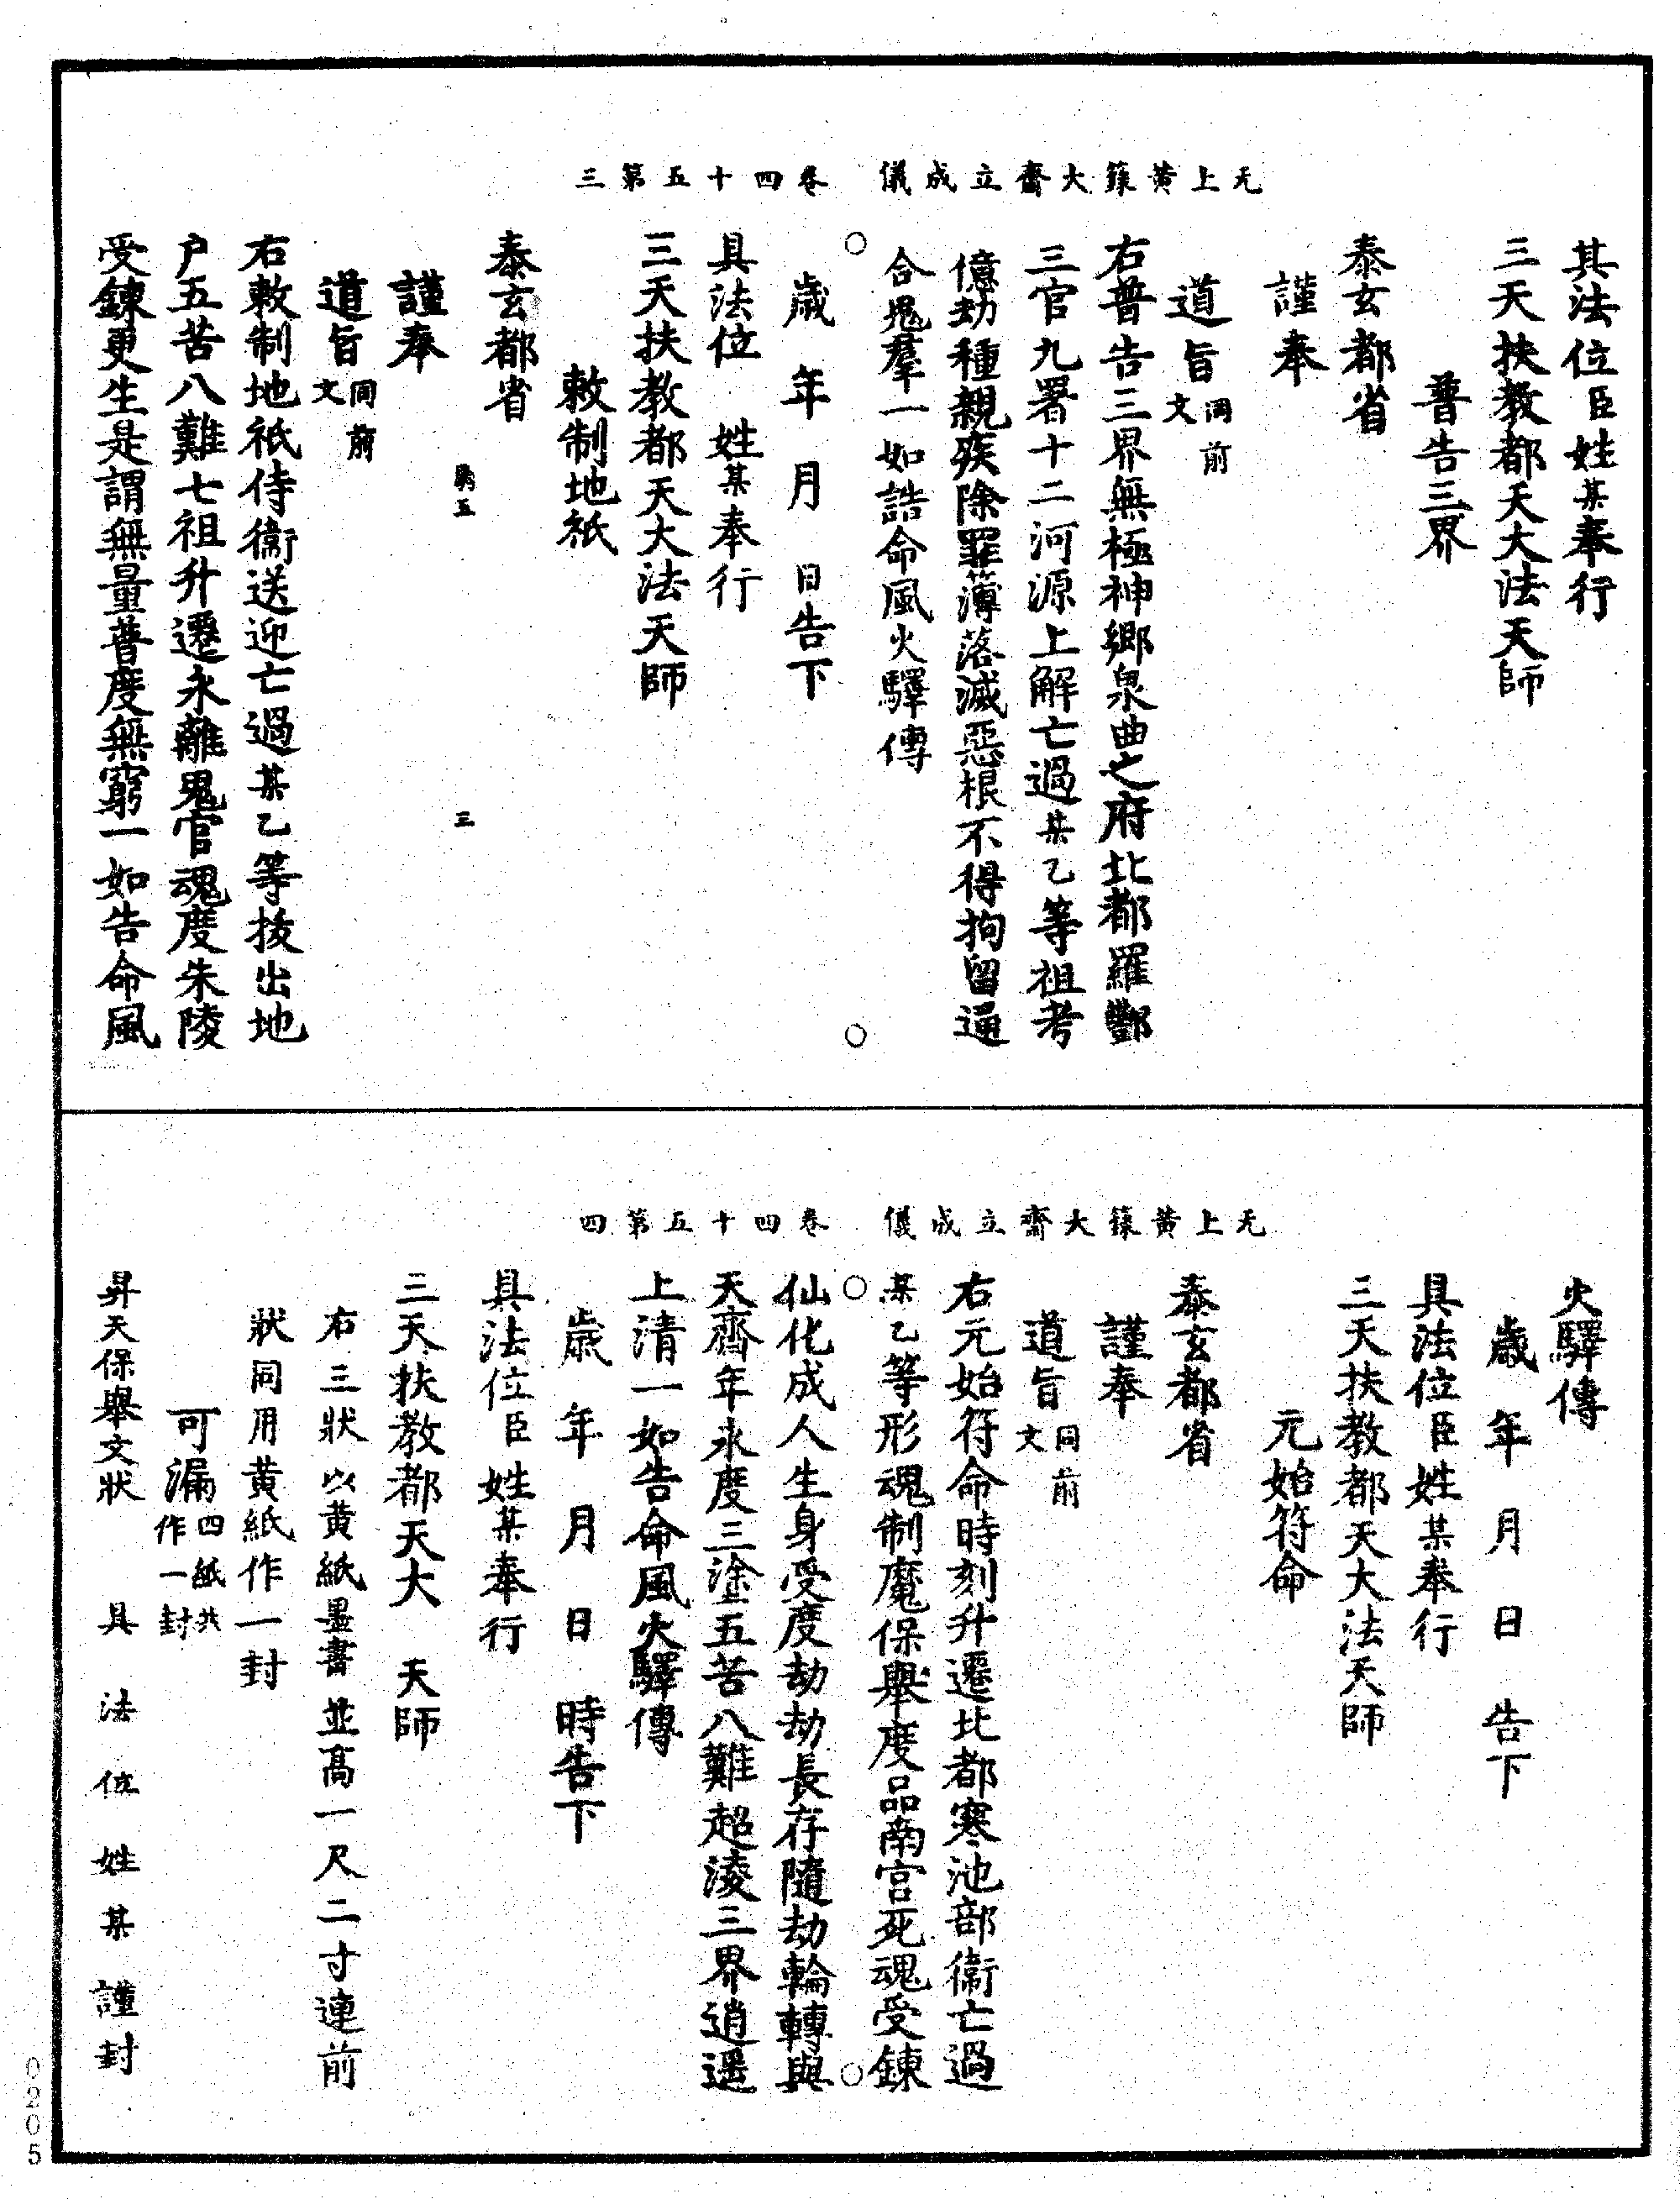 无上黃籙大齋立成儀　卷四十五第三
其法位臣姓某奉行
三天扶教都天大法天師
普告三界
泰玄都省
謹奉
道旨同前文
右普告三界無極神鄉泉曲之府北都羅酆
三官九署十二河源上解亡過某乙等祖考
億劫種親疾除罪簿落滅惡根不得拘留逼
合鬼羣一如誥命風火驛傳
歲　年　月　日告下
具法位　姓某奉行
三天扶教都天大法天師
敕制地祇
泰玄都省
三
謹奉
道旨同前文
右敕制地祇侍衞送迎亡過某乙等拔出地
户五苦八難七祖升遷永離鬼官魂度朱陵
受鍊更生是謂無量普度無窮一如告命風
无上黃籙大齋立成儀　卷四十五第四
火驛傳
歲　年　月　日　告下
具法位臣姓某奉行
三天扶教都天大法天師
元始符命
泰玄都省
謹奉
道旨同前文
右元始符命時刻升遷北都寒池部衞亡過
某乙等形魂制魔保舉度品南宫死魂受鍊
仙化成人生身受度劫劫長存隨劫輪轉與
天齊年永度三塗五苦八難超淩三界逍遥
上清一如告命風火驛傳
歲　年　月　日　時告下
具法位臣　姓某奉行
三天扶教都天大　天師
右三狀以黄紙墨書並髙一尺二寸連前
狀同用黄紙作一封
可漏四紙共作一封
昇天保舉文狀　具法位姓某謹封
0205